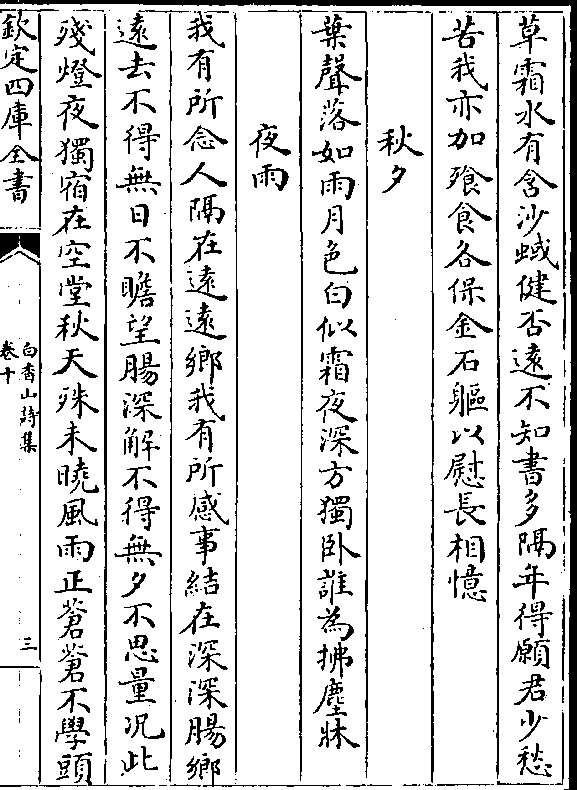 草霜水有含沙蜮健否遠不知書多隔年得願君少愁
苦我亦加飱食各保金石軀以慰長相憶
秋夕
葉聲落如雨月色白似霜夜深方獨卧誰為拂塵牀
夜雨
我有所念人隔在遠遠鄉我有所感事結在深深腸鄉
遠去不得無日不瞻望腸深解不得無夕不思量况此
殘燈夜獨宿在空堂秋天殊未曉風雨正蒼蒼不學頭
欽定四庫全書
白香山詩集
卷十
三